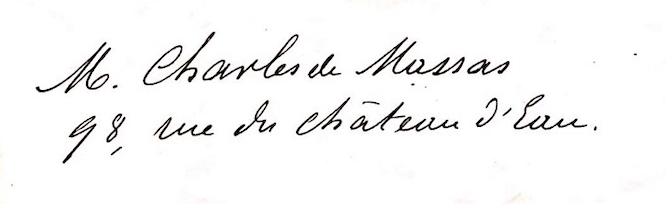 M. Charles de Massas
98, rue du Château d'Eau.